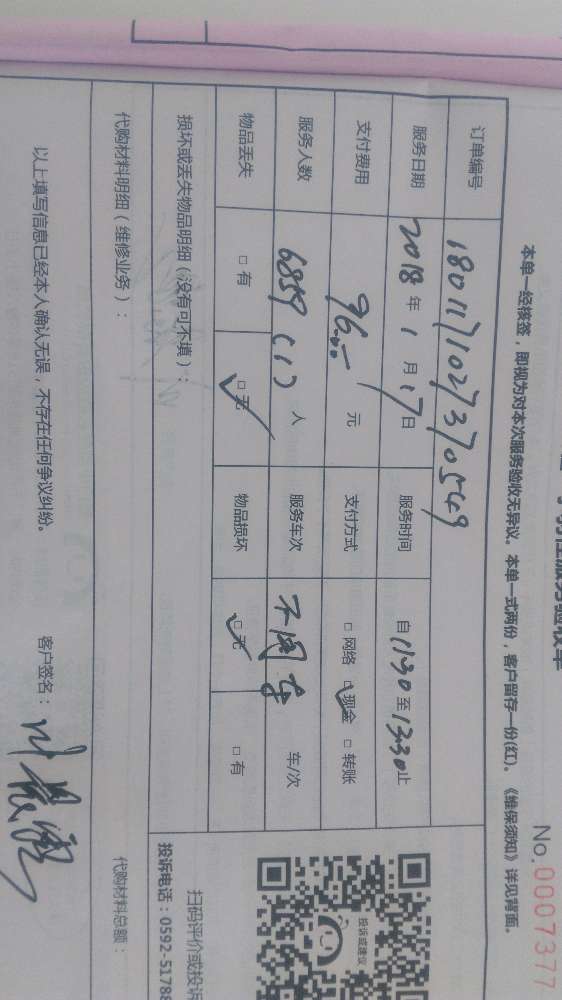 No.0007377
本单一经核签，即视为对本次服务验收无异议。本单一式两份，客户留存一份(红)。《维保须知》详见背面。
订单编号 180117102370549
服务日期 2018 年 1 月 17 日 服务时间 自 11:30 至 13:30 止
支付费用 96.00 元 支付方式 □ 网络 ☑ 现金 □ 转账
服务人数 6859 (1) 人 服务车次 不用车 车/次
物品丢失 □ 有 ☑ 无 物品损坏 ☑ 无 □ 有
损坏或丢失物品明细(没有可不填)：
代购材料明细(维修业务)：
代购材料总额：
以上填写信息已经本人确认无误，不存在任何争议纠纷。 客户签名：
投诉或建议
扫码评价或投诉
投诉电话：0592-51788